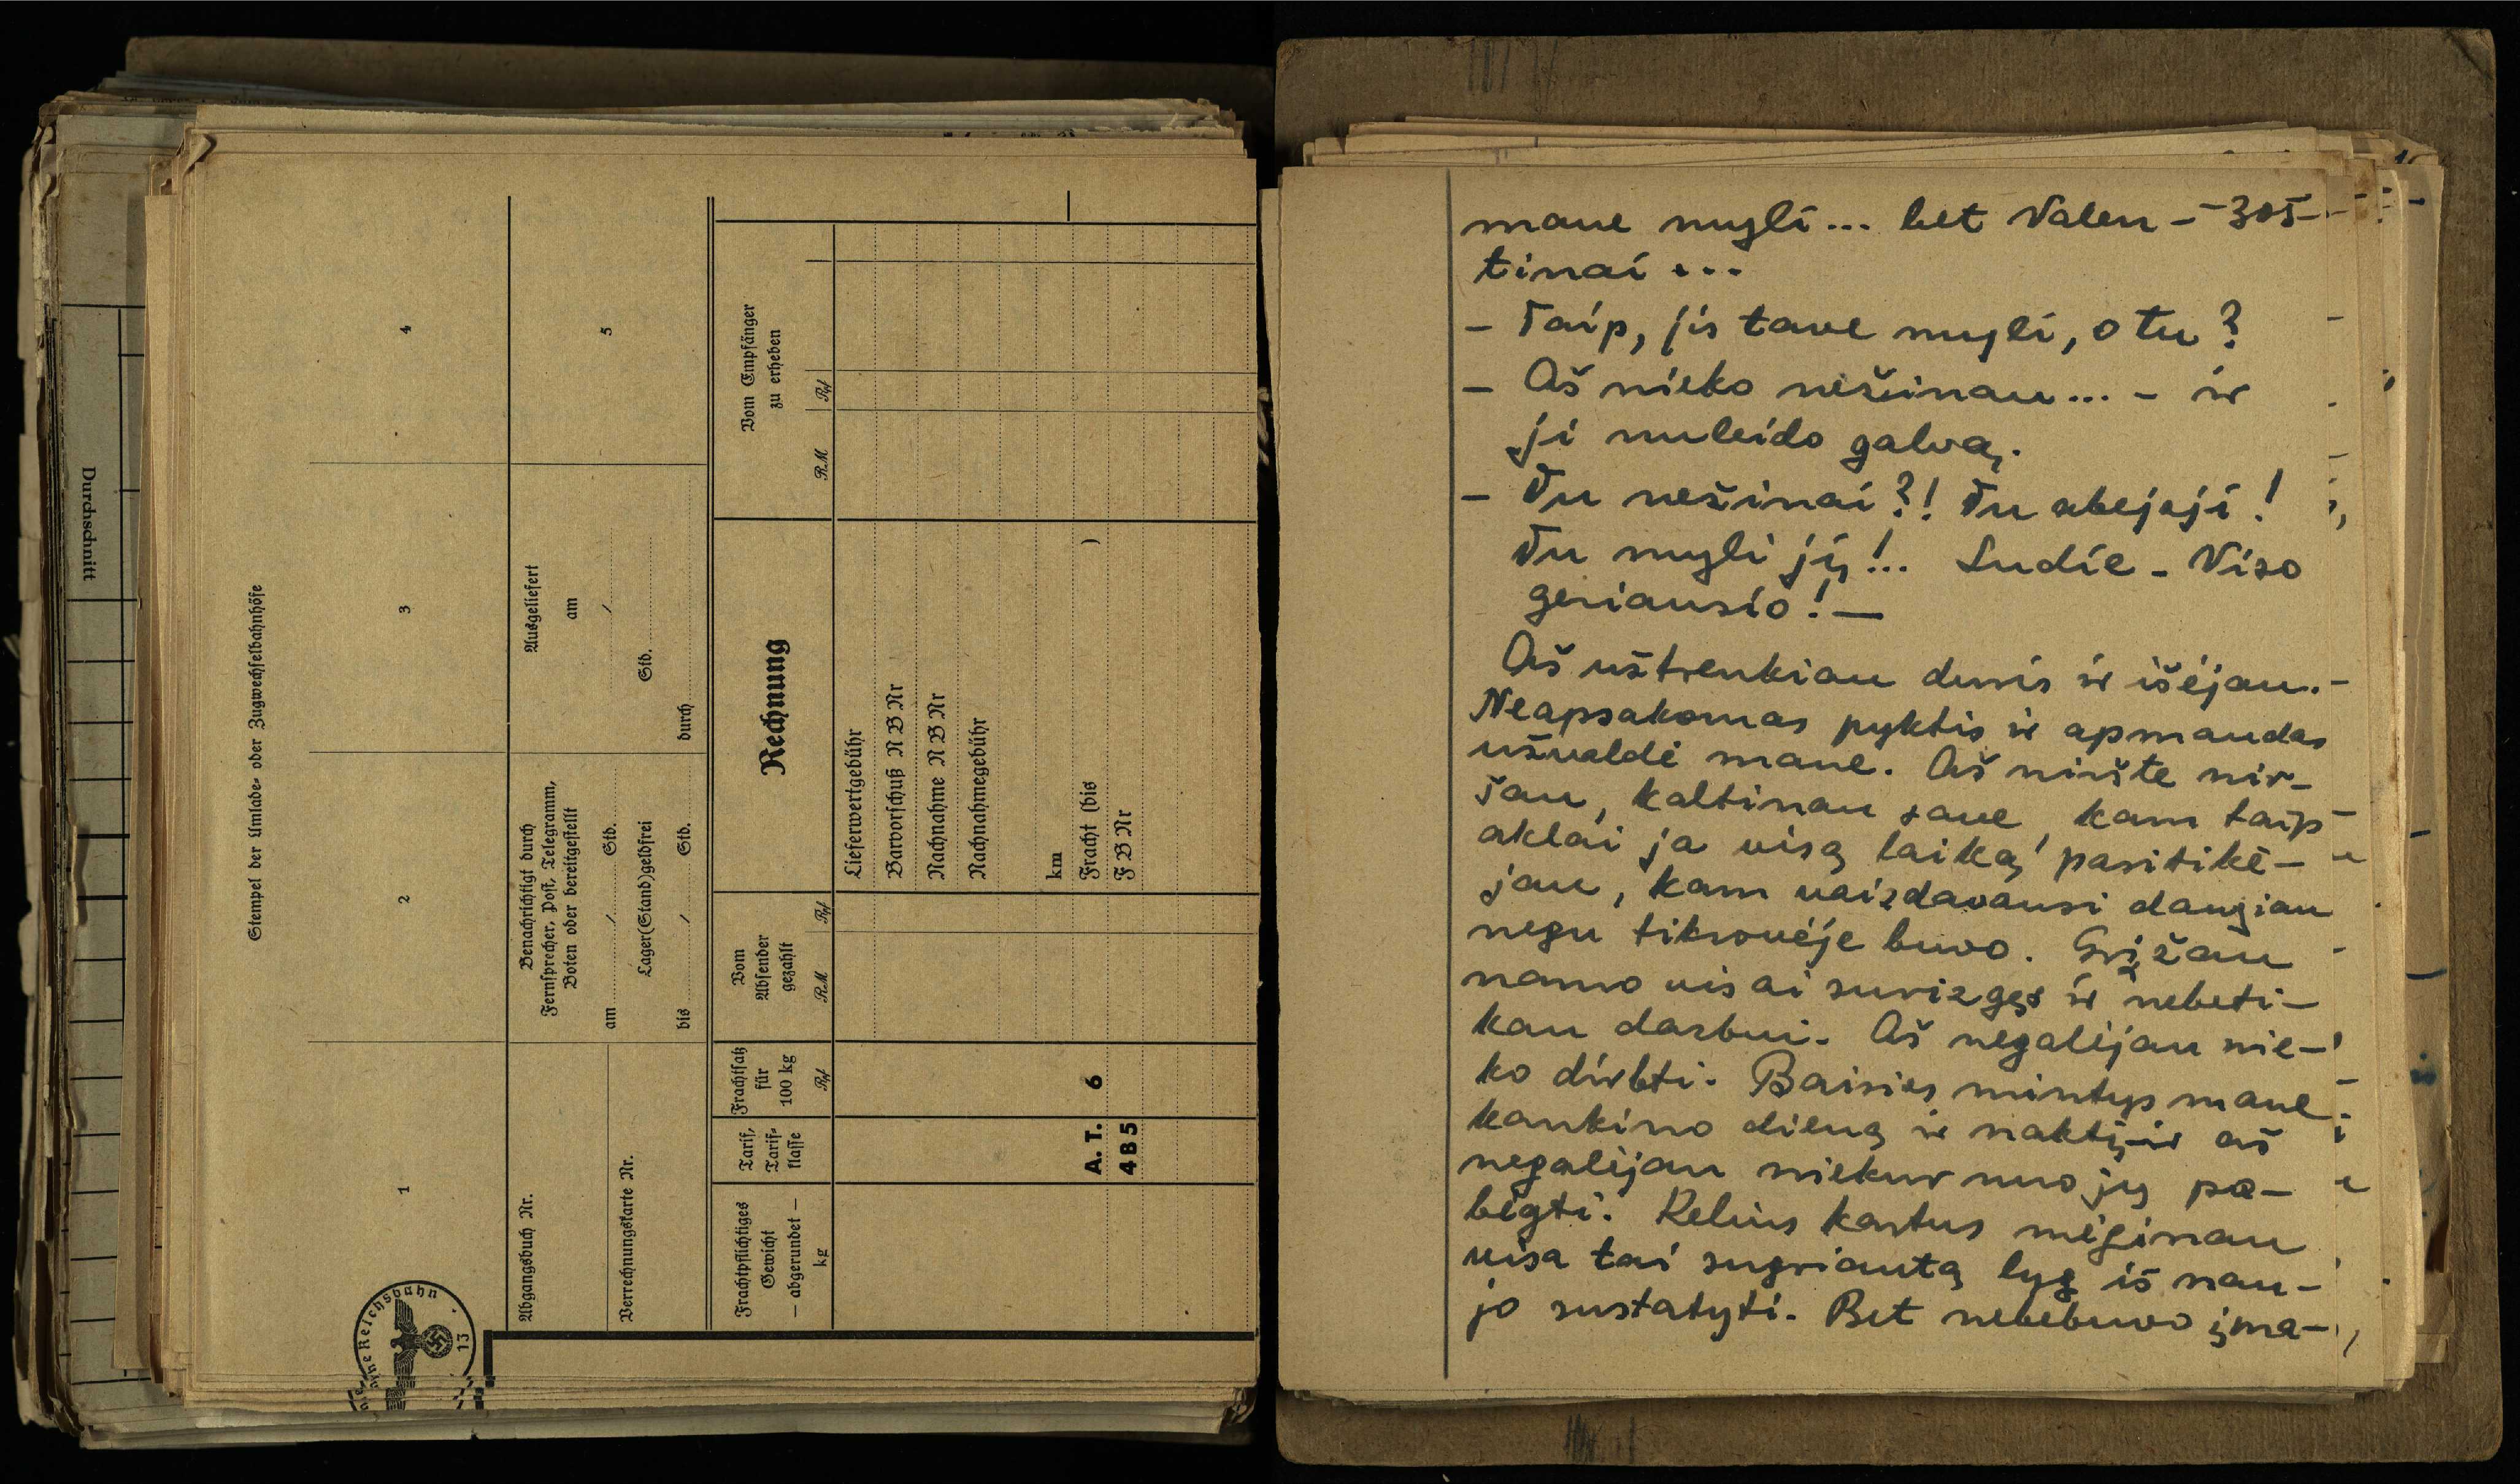 Durchschnitt
Stempel der Umlade- oder Zugwechselbahnhöfe
1
2
3
4
Abgangsbuch Nr.
Verrechnungskarte Nr.
Benachrichtigt durch
Fernsprecher, Post, Telegramm,
Boten oder bereitgestellt
am / Std.
Lager(Stand)geldfrei
bis / Std.
Ausgeliefert
am
/
Std.
durch
5
Frachtpflichtiges
Gewicht
— abgerundet —
kg
Tarif,
Tarif-
klasse
Frachtsatz
für
100 kg
Rpf
Vom
Absender
gezahlt
RM Rpf
Rechnung
Vom Empfänger
zu erheben
RM Rpf
Lieferwertgebühr
Barvorschuß N B Nr
Nachnahme N B Nr
Nachnahmegebühr
km
A. T. 6 Fracht (bis )
4 8 5 F B Nr
Reichsbahn
13
mane myli... bet Valen- -305-
tinai...
- Taip, jis tave myli, o tu?
- Aš nieko nežinau... - ir
ji nuleido galvą.
- Tu nežinai?! Tu abejoji!
Tu myli jį!... Sudie - Viso
geriausio! —
Aš užtrenkiau duris ir išėjau.-
Neapsakomas pyktis ir apmaudas
užvaldė mane. Aš niršte nir-
šau, kaltinau save, kam taip
aklai ja visą laiką pasitikė-
jau, kam vaizdavausi daugiau
negu tikrovėje buvo. Grįžau
namo visai surizgęs ir nebeti-
kau darbui. Aš negalėjau nie-
ko dirbti. Baisios mintys mane
kankino dieną ir naktį ir aš
negalėjau niekur nuo jų pa-
bėgti. Kelius kartus mėginau
visa tai sugriautą lyg iš nau-
jo sustatyti. Bet nebebuvo įma-